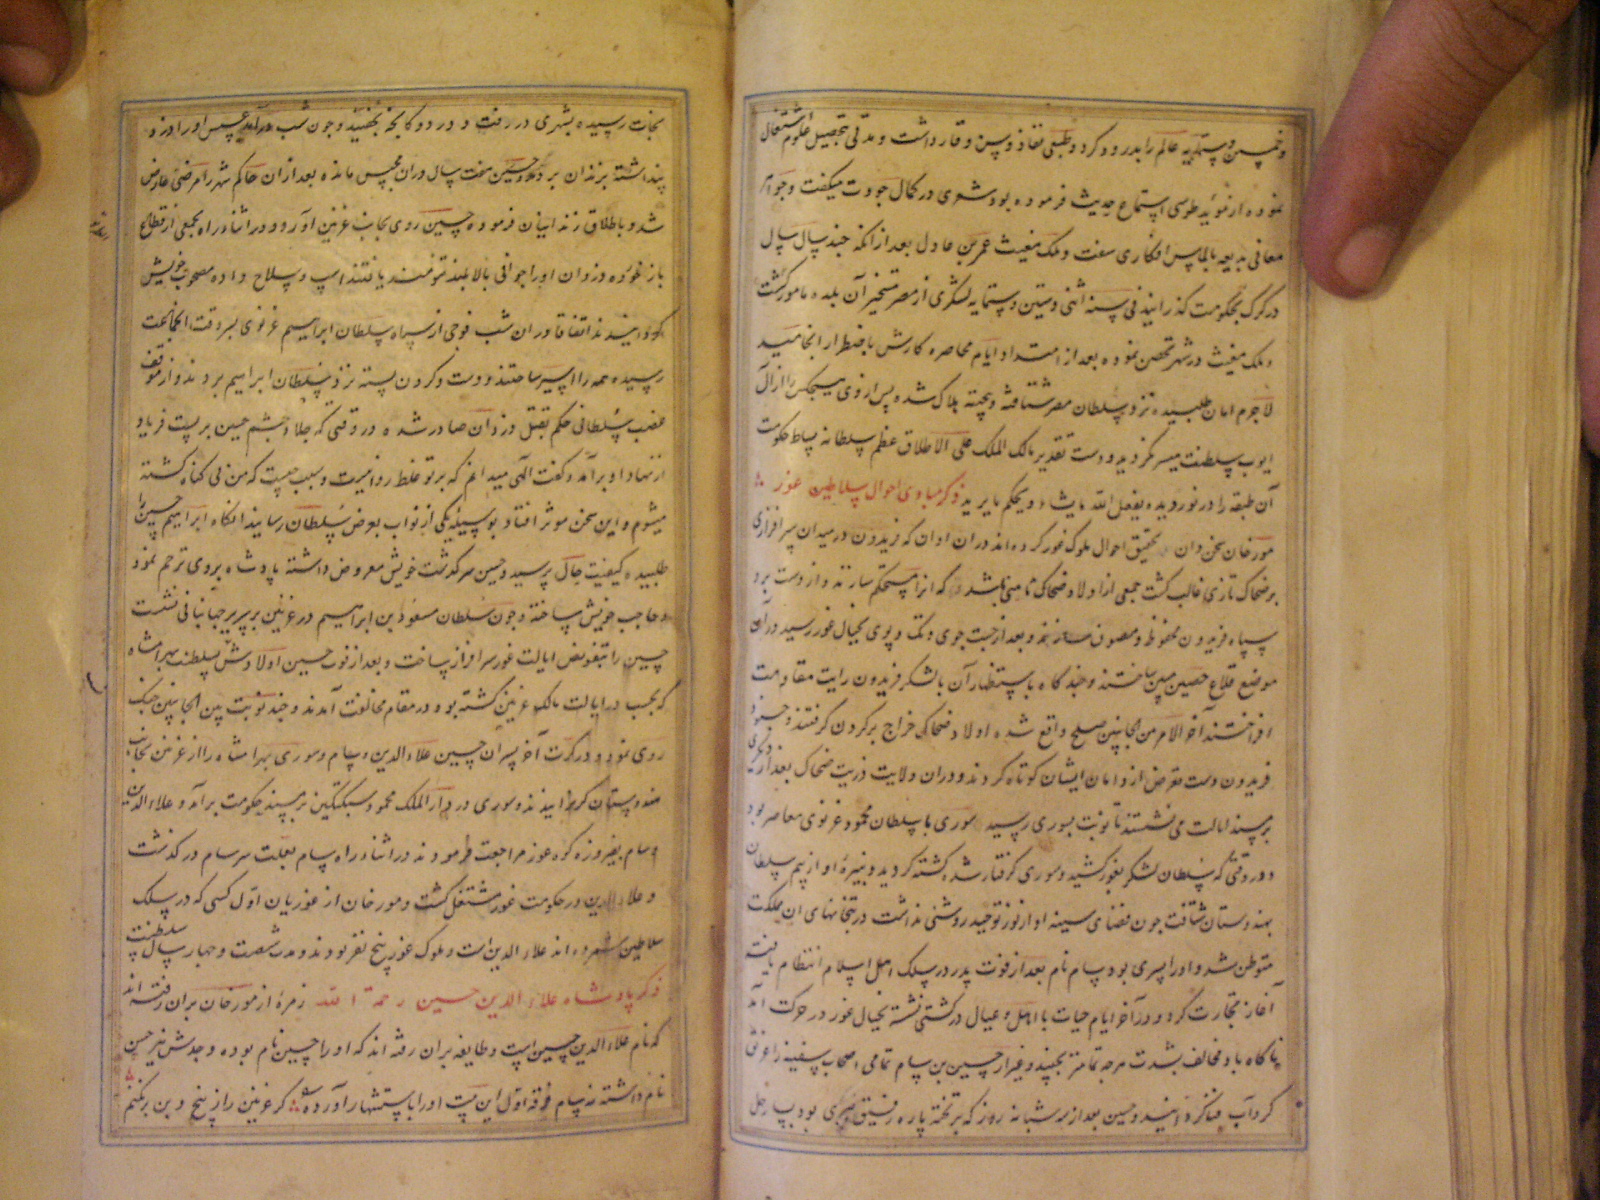 و خمسین و ستمایه عالم را بدرود کرد و طبعی نقاد و پس وقار داشت و مدتی بتحصیل علوم اشتغال
نموده از موید طوسی استماع حدیث فرموده بود و شعری در کمال جودت میگفت و جواهر
معانی بدیعه بالماس افکاری سفت و ملک مغیث عمر بن عادل بعد از انکه چند سال
در کرک بحکومت گذرانید فی سنه اثنی و ستین و ستمایه لشکری از مصر بتسخیر آن بلده مامور گشت
و ملک مغیث در شهر تحصن نموده بعد از امتداد ایام محاصره کارش باضطرار انجامید
لاجرم امان طلبیده نزد سلطان مصر شتافته و بحیته هلاک شده پس از وی هیچکس را از آل
ایوب سلطنت میسر نگردید و دست تقدیر مالک الملک علی الاطلاق عظم سلطانه بساط حکومت
آن طبقه را درنوردید یفعل الله ما یشاء و یحکم ما یرید ذکر مبادی احوال سلاطین غور
مورخان سخن دان تحقیق احوال ملوک غور کرده اند در ان اوان که فریدون در میدان سرافرازی
بر ضحاک تازی غالب گشت جمعی از اولاد ضحاک مامنی باشد که انرا مستحکم سازند و از دست برد
سپاه فریدون محفوظ و مصون مانند و بعد از جست جوی و تک و پوی بجبال غور رسید در آن
موضع قلاع حصین متین ساختند و چند گاه باستظهار آن با لشکر فریدون رایت مقاومت
افراختند آخر الامر من الجانبین صلح واقع شده اولاد ضحاک خراج بر گردن گرفتند و جنود
فریدون دست تعرض از دامان ایشان کوتاه کردند و در ان ولایت ذریت ضحاک بعد از یکدیگری
بر مسند ایالت می نشستند تا نوبت بسوری رسید سوری با سلطان محمود غزنوی معاصر بود
و در وقتی که سلطان لشکر بغور کشید و سوری گرفتار شده کشته گردید و نبیره او از بیم سلطان
بهندوستان شتافت چون فضای سینه او از نور توحید روشنی نداشت در بتخانهای ان مملکت
متوطن شد و او را پسری بود سام نام بعد از فوت پدر در سلک اهل اسلام انتظام یافته
آغاز تجارت کرد و در آخر ایام حیات با اهل و عیال در کشتی نشسته بجبال غور در حرکت آمد
ناگاه باد مخالف بشدت هرچه تمامتر بجنبید و غیر از حسین بن سام تمامی اصحاب سفینه را غرق
گرداب فنا گردانید و حسین بعد از سه شبانه روز که بر تخته پاره رفیق ببری بود بساحل
نجات رسیده بشهری در رفت و در دوکانچه بخفتید و چون شب درآمد عسس او را دزد
پنداشته بزندان برد و حسین هفت سال دران محبس مانده بعد ازان حاکم شهر را مرضی عارض
شد و باطلاق زندانیان فرموده حسین روی بجانب غزنین آورد و در اثنا راه بجمعی از قطاع
باز خورده دزدان او را جوانی بالا بلند تنومند یافتند اسپ و سلاح داده مصحوب خویش
گردانیدند اتفاقا دران شب فوجی از سپاه سلطان ابراهیم غزنوی بسروقت انجماعت
رسیده همه را اسیر ساختند و دست و گردن بسته نزد سلطان ابراهیم بردند و از موقف
غضب سلطانی حکم بقتل دزدان صادر شده در وقتی که جلاد چشم حسین بر بست فریاد
از نهاد او برآمد و گفت الهی میدانم که بر تو غلط روا نیست و سبب چیست که من بی گناه کشته
میشوم و این سخن موثر افتاد بوسیله یکی از نواب بعرض سلطان رسانید انگاه ابراهیم حسین را
طلبیده کیفیت حال پرسید و حسین سرگذشت خویش معروض داشته پادشاه بر وی ترحم نمود
و حاجب خویش ساخته و چون سلطان مسعود بن ابراهیم در غزنین بر سریر جهانبانی نشست
حسین را بتفویض ایالت غور سرافراز ساخت و بعد از فوت حسین اولادش بسلطنت بهرامشاه
که بحسب در ایالت مالک غزنین گشته بود در مقام مخالفت آمدند و چند نوبت بین الجانبین جنگ
روی نمود و در کرت آخر پسران حسین علاء الدین و سام و سوری بهرامشاه را از غزنین بجانب
هندوستان گریزانیدند و سوری در دار الملک محمود سبکتکین بر مسند حکومت برآمد و علاء الدین
و سام بفیروزه کوه غور مراجعت فرمودند در اثنا راه سام بعلت سرسام در گذشت
و علاء الدین در حکومت غور مشتغل گشت و مورخان از غوریان اول کسی که در سلک
سلاطین شمرده اند علاء الدین است و ملوک غور پنج نفر بودند و مدت شصت و چهار سال سلطنت
ذکر پادشاه علاء الدین حسین رحمة الله زمرهٔ از مورخان بران رفته اند
که نام علاء الدین حسین است و طایفه بران رفته اند که او را حسین نام بوده و جدش نیز حسن
نام داشته نه سام فرقه اول این بیت او را باستشهار آورده گر غزنین را ز بیخ و بن برنکنم